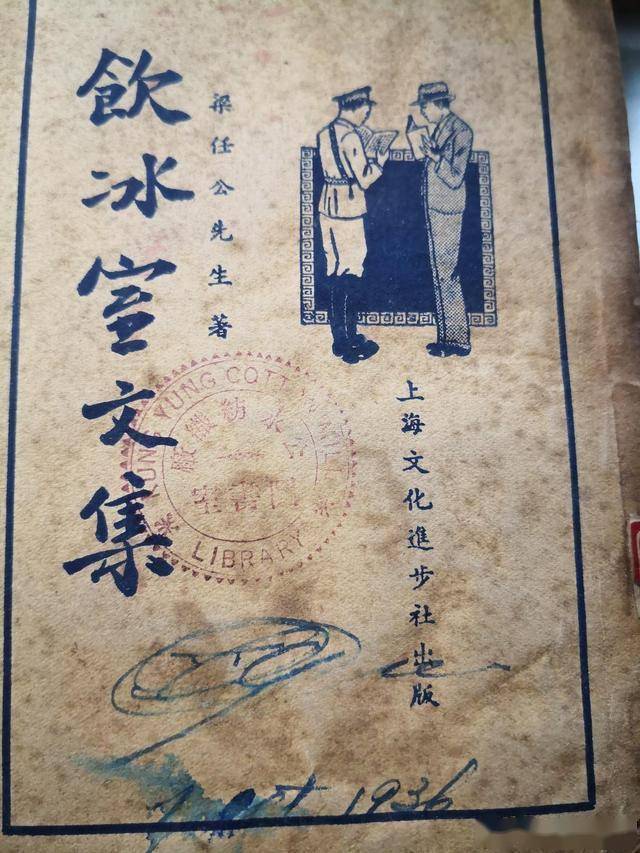 飲冰室文集
梁任公先生著
上海文化進步社出版
YUNG COTT
LIBRARY
紡織廠
圖書室
1936